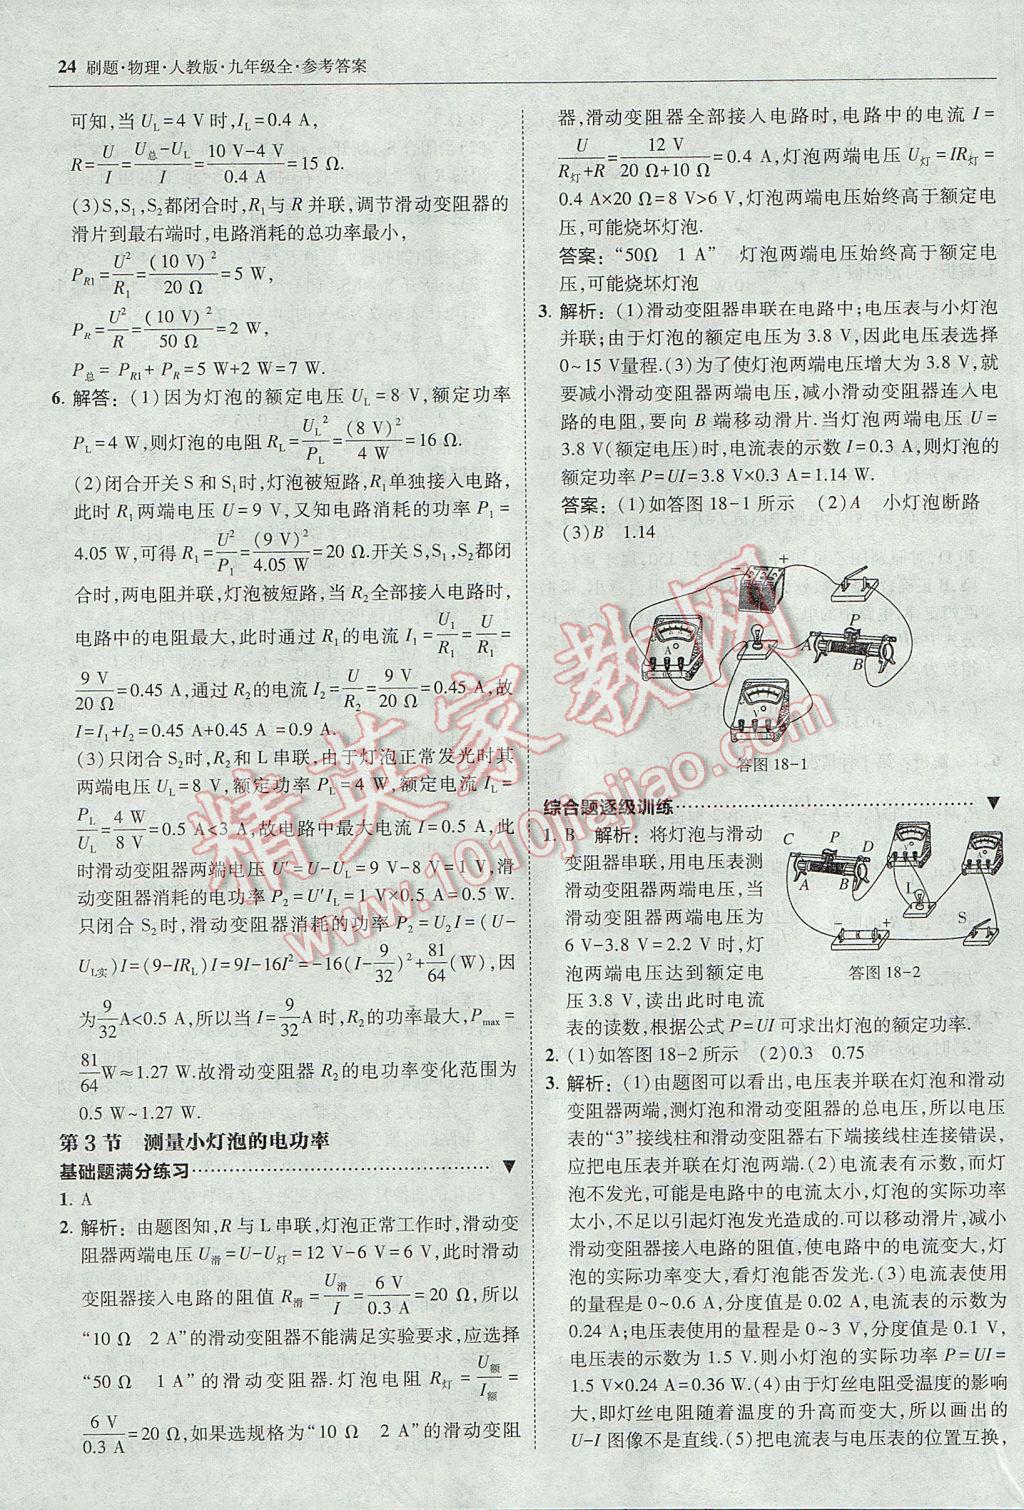 24 刷题·物理·人教版·九年级全·参考答案
可知,当 U_L=4 V时,I_L=0.4 A,
R=U/I=(U_总-U_L)/I=(10 V-4 V)/(0.4 A)=15 Ω.
(3)S,S₁,S₂都闭合时,R₁与R并联,调节滑动变阻器的
滑片到最右端时,电路消耗的总功率最小,
P_R1=U²/R₁=(10 V)²/(20 Ω)=5 W,
P_R=U²/R=(10 V)²/(50 Ω)=2 W,
P_总=P_R1+P_R=5 W+2 W=7 W.
6. 解答:(1)因为灯泡的额定电压 U_L=8 V,额定功率
P_L=4 W,则灯泡的电阻 R_L=U_L²/P_L=(8 V)²/(4 W)=16 Ω.
(2)闭合开关S和S₁时,灯泡被短路,R₁单独接入电路,
此时R₁两端电压U=9 V,又知电路消耗的功率P₁=
4.05 W,可得R₁=U²/P₁=(9 V)²/(4.05 W)=20 Ω.开关S,S₁,S₂都闭
合时,两电阻并联,灯泡被短路,当R₂全部接入电路时,
电路中的电阻最大,此时通过R₁的电流I₁=U₁/R₁=U/R₁=
9 V/20 Ω=0.45 A,通过R₂的电流I₂=U/R₂=9 V/20 Ω=0.45 A,故
I=I₁+I₂=0.45 A+0.45 A=0.9 A.
(3)只闭合S₂时,R₂和L串联,由于灯泡正常发光时其
两端电压U_L=8 V,额定功率P_L=4 W,额定电流I_L=
P_L/U_L=4 W/8 V=0.5 A<3 A,故电路中最大电流I=0.5 A,此
时滑动变阻器两端电压U′=U-U_L=9 V-8 V=1 V,滑
动变阻器的电功率P₂=U′I_L=1 V×0.5 A=0.5 W.
只闭合S₂时,滑动变阻器消耗的功率P₂=U₂I=(U-
U_L实)I=(9-IR_L)I=9I-16I²=-16(I-9/32)²+81/64(W),因
为9/32A<0.5 A,所以当I=9/32A时,R₂的功率最大,P_max=
81/64W≈1.27 W.故滑动变阻器R₂的电功率变化范围为
0.5 W~1.27 W.
第3节 测量小灯泡的电功率
基础题满分练习
1. A
2. 解析:由题图知,R与L串联,灯泡正常工作时,滑动变
阻器两端电压U_滑=U-U_灯=12 V-6 V=6 V,此时滑动
变阻器接入电路的阻值R_滑=U_滑/I=6 V/0.3 A=20 Ω,所以
“10 Ω 2 A”的滑动变阻器不能满足实验要求,应选择
“50 Ω 1 A”的滑动变阻器.灯泡电阻R_灯=U_额/I_额=
6 V/0.3 A=20 Ω,如果选规格为“10 Ω 2 A”的滑动变阻
器,滑动变阻器全部接入电路时,电路中的电流I=
U/(R_灯+R)=12 V/(20 Ω+10 Ω)=0.4 A,灯泡两端电压U_灯=IR_灯=
0.4 A×20 Ω=8 V>6 V,灯泡两端电压始终高于额定电
压,可能烧坏灯泡.
答案:“50Ω 1 A” 灯泡两端电压始终高于额定电
压,可能烧坏灯泡
3. 解析:(1)滑动变阻器串联在电路中;电压表与小灯泡
并联;由于灯泡的额定电压为3.8 V,因此电压表选择
0~15 V量程.(3)为了使灯泡两端电压增大为3.8 V,就
要减小滑动变阻器两端电压,减小滑动变阻器连入电
路的电阻,要向B端移动滑片.当灯泡两端电压U=
3.8 V(额定电压)时,电流表的示数I=0.3 A,则灯泡的
额定功率P=UI=3.8 V×0.3 A=1.14 W.
答案:(1)如答图18-1所示 (2)A 小灯泡断路
(3)B 1.14
- +
P
A
A B
V
答图18-1
综合题逐级训练
1. B 解析:将灯泡与滑动
变阻器串联,用电压表测
滑动变阻器两端电压,当
滑动变阻器两端电压为
6 V-3.8 V=2.2 V时,灯
泡两端电压达到额定电
压3.8 V,读出此时电流
表的读数,根据公式P=UI可求出灯泡的额定功率.
C P D
A B
L
S
- +
答图18-2
2. (1)如答图18-2所示 (2)0.3 0.75
3. 解析:(1)由题图可以看出,电压表并联在灯泡和滑动
变阻器两端,测灯泡和滑动变阻器的总电压,所以电压
表的“3”接线柱和滑动变阻器右下端接线柱连接错误,
应把电压表并联在灯泡两端.(2)电流表有示数,而灯
泡不发光,可能是电路中的电流太小,灯泡的实际功率
太小,不足以引起灯泡发光造成的.可以移动滑片,减小
滑动变阻器接入电路的阻值,使电路中的电流变大,灯
泡的实际功率变大,看灯泡能否发光.(3)电流表使用
的量程是0~0.6 A,分度值是0.02 A,电流表的示数为
0.24 A;电压表使用的量程是0~3 V,分度值是0.1 V,
电压表的示数为1.5 V.则小灯泡的实际功率P=UI=
1.5 V×0.24 A=0.36 W.(4)由于灯丝电阻受温度的影响
大,即灯丝电阻随着温度的升高而变大,所以画出的
U-I图像不是直线.(5)把电流表与电压表的位置互换,
精英家教网
www.1010jiajiao.com